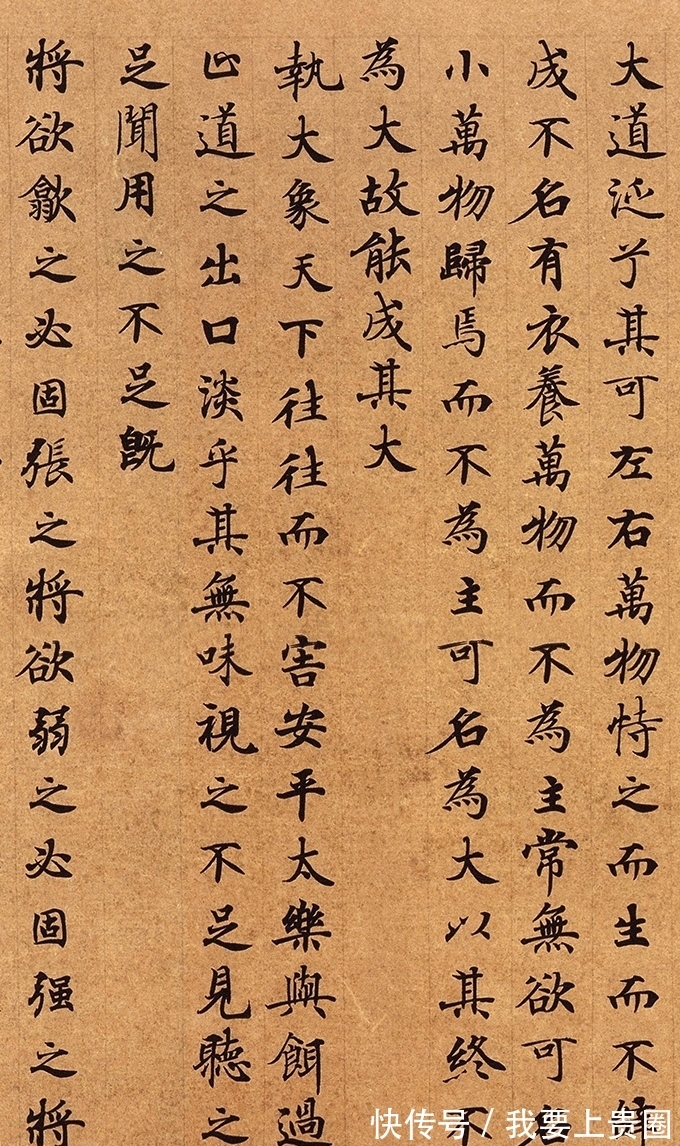 大道兮其可左右萬物恃之而生而不
成不名有衣養萬物而不為主常無欲可
小萬物歸焉而不為主可名為大以其終不
為大故能成其大
執大象天下往往而不害安平太樂與餌過
止道之出口淡乎其無味視之不足見聽之
足聞用之不足既
將欲歙之必固張之將欲弱之必固强之將
快传号 / 我要上贵圈